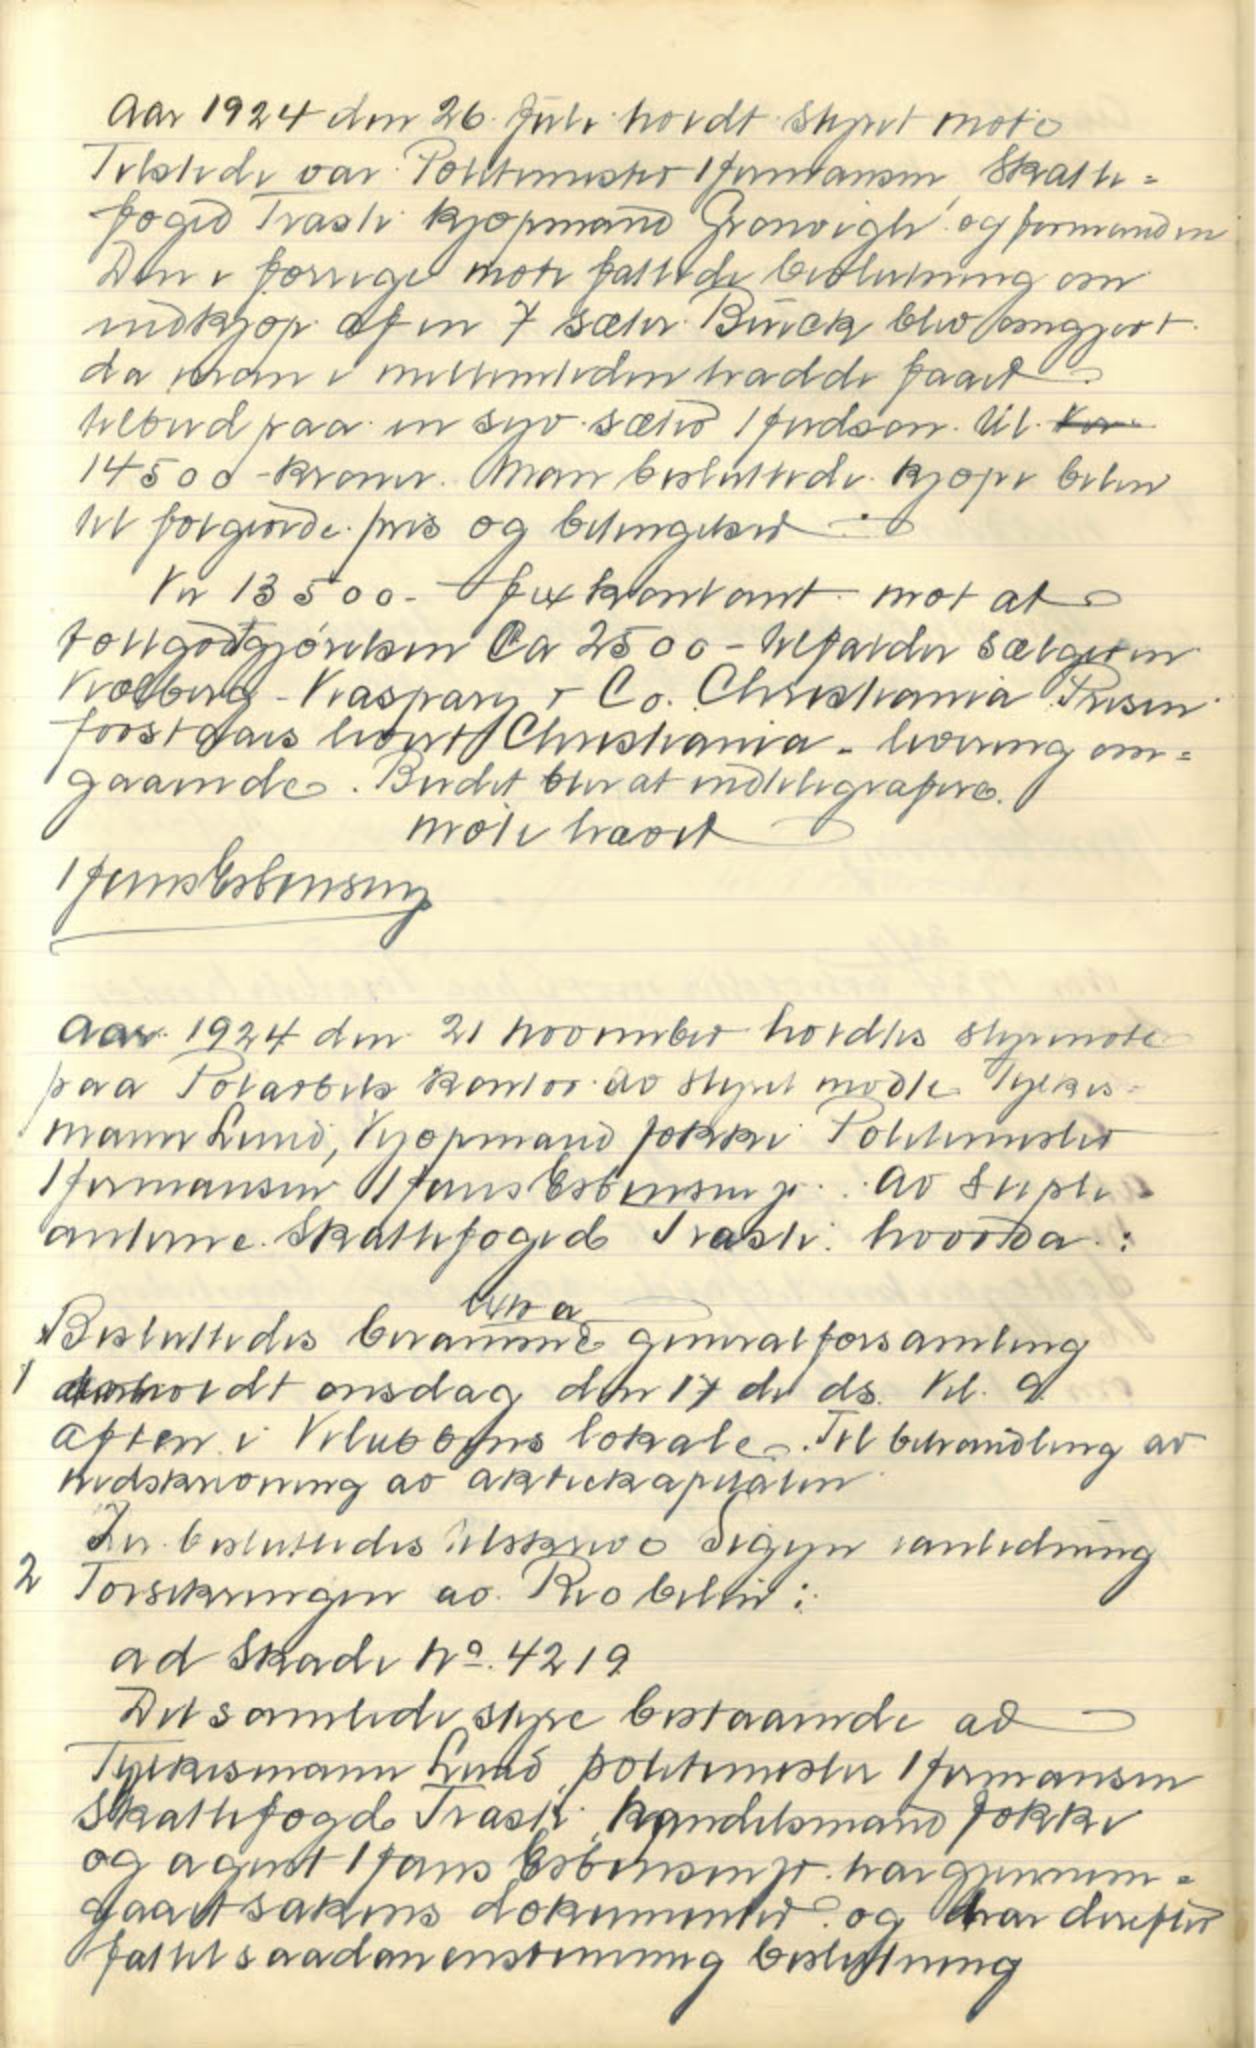 Aar 1924 den 26. Juli holdt styret møte
Tilstede var Politimester Hermansen, Skatte=
foged Trasti kjøpmand Grønvigh og formanden
Den i forrige møte fattede beslutning om
indkjøp af en 7 sæter Buick blev omgjort
da man i mellemtiden hadde faaet
tilbud paa en syv sæter Hudson til Kr
14500 - kroner. Man besluttede kjøpe bilen
til følgende pris og betingelser
Kr 13500 - fix kontant mot at
toldgodtgjørelsen Ca 2500 - tilfalder sælgeren
Kolberg - Kaspary & Co. Christiania Prisen
forstaaes levert Christiania - levering om=
gaaende. Budet blev at indtelegrafere.
møte hævet
Hans Esbensen jr
Aar 1924 den 21 November holdtes styremøte
paa Polarbils kontor av styret mødte Fylkes-
mann Lund, Kjøpmand Fokke Politimester
Hermansen Hans Esbensen jr. Av suple-
anterne Skattefoged Trasti. hvorda:
Besluttedes beramme extra generalforsamling
1 avholdt onsdag den 17 de ds. Kl. 9
aften i Klubbens lokale. Til behandling av
nedskrivning av aktiekapitalen
2 Der besluttedes tilskrive Sigyn ianledning
Forsikringen av Reo bilen:
ad Skade No. 4219
Det samlede styre bestaaende ad
Fylkesmann Lund politimester Hermansen
Skattefogd Trasti, handelsmand Fokke
og agent Hans Esbensen jr. har gjennem=
gaaet sakens dokumenter og har derefter
fattet saadan enstemmig beslutning